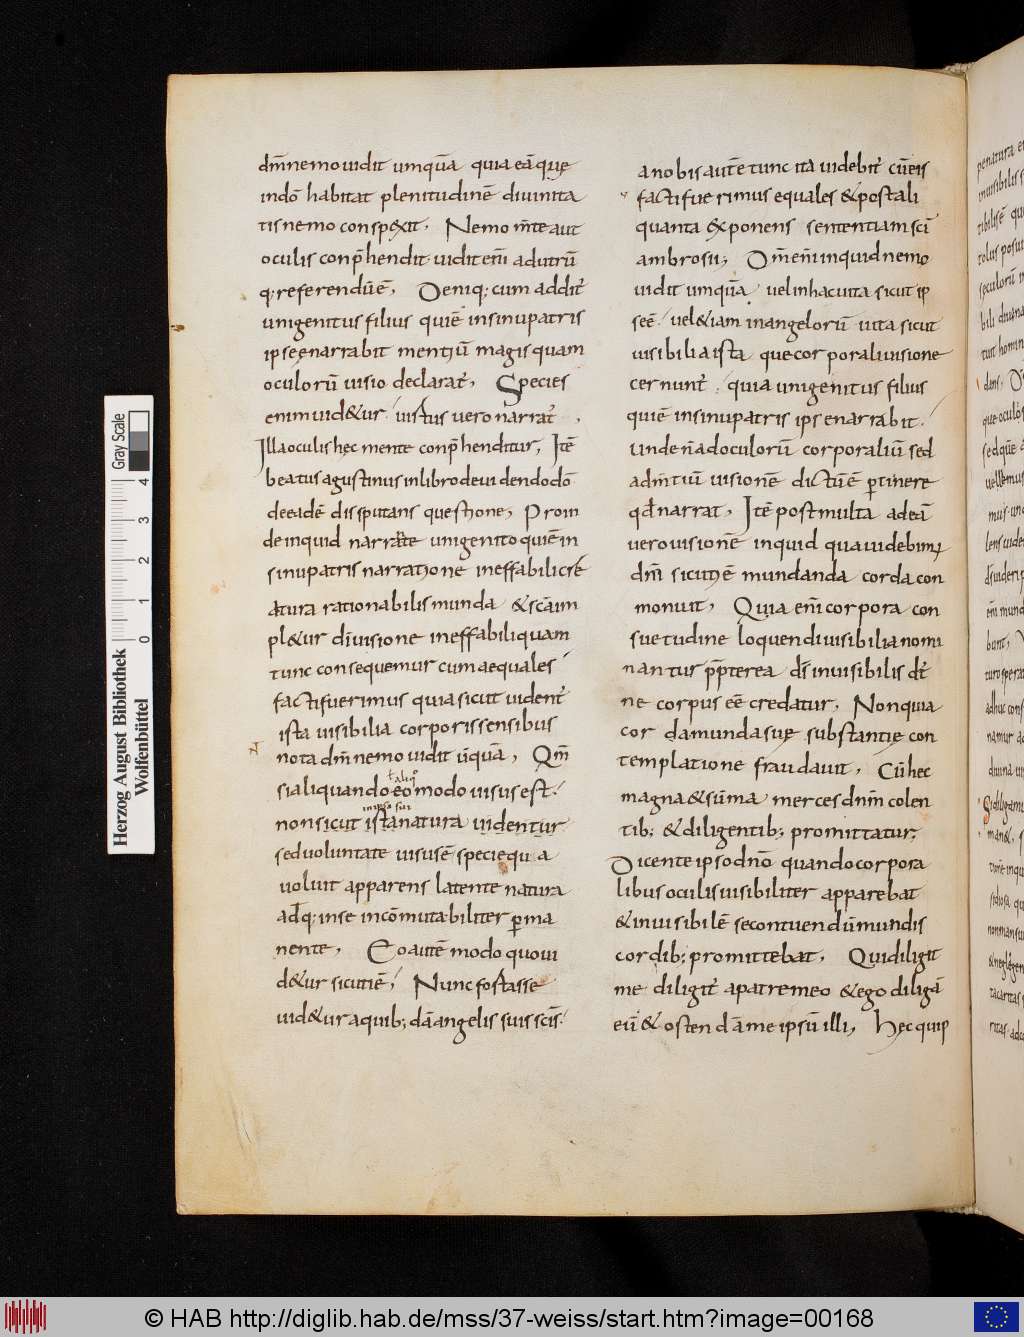 dm̄ nemo uidit umquā quia eā quę
indō habitat plenitudinē diuinita
tis nemo conspexit. Nemo m̄te aut
oculis conp̄hendit. uidit eni ad utrū
q; referendū ē, Deniq; cum addit̄
unigenitus filius qui ē in sinu patris
ipse enarrabit mentiū magis quam
oculorū uisio declarat̄, Species
enim uid&ur. uirtus uero narrat̄,
Illa oculis hęc mente conp̄henditur, Itē
beatus agustinus in libro de uidendo dō
de eadē disputans questione, Proin
de inquid narrante unigenito qui ē in
sinu patris narratione ineffabili cre
atura rationabilis munda & scā im
pl&ur dī uisione ineffabili quam
tunc consequemur cum aequales
facti fuerimus quia sicut uident̄
ista uisibilia corporis sensibus
nota dm̄ nemo uidit ūquā, Qm̄
si aliquando eo modo uisus est.
non sicut ista natura uidentur
sed uoluntate uisus ē specie qu a
uoluit apparens latente natura
adq; in se incōmutabiliter p̱ma
nente, Eo autē modo quo ui
d&ur sicuti ē, Nunc fortasse
uid&ur a quib; dā angelis suis scīs.
a nobis autē tunc ita uidebit̄ cū eis
facti fuerimus equales & post ali
quanta exponens sententiam scī
ambrosii, Dm̄ eni inquid nemo
uidit umquā uel in hac uita sicut ip
se ē. uel &iam in angelorū uita sicut
uisibilia ista que corporali uisione
cernunt̄. quia unigenitus filius
qui ē in sinu patris ipse narrabit.
unde n̄ ad oculorū corporaliū sed
ad m̄tiū uisionē dictū ē p̱tinere
qđ narrat, Itē post multa ad eā
uero uisionē inquid qua uidebim;
dm̄ sicuti ē mundanda corda con
monuit, Quia eni corpora con
suetudine loquendi uisibilia nomi
nantur p̄pterea dī inuisibilis dr̄
ne corpus eē credatur, Non quia
cor da munda suę substantię con
templatione fraudauit, Cū hec
magna & sūma merces dm̄ colen
tib; & diligentib; promittatur;
Dicente ipso dnō quando corpora
libus oculis uisibiliter apparebat
& inuisibilē se contuendū mundis
cordib; promittebat, Qui diligit
me diligit̄ a patre meo & ego diligā
eū & ostendā me ipsū illi, Hęc quip
© HAB http://diglib.hab.de/mss/37-weiss/start.htm?image=00168
Herzog August Bibliothek
Wolfenbüttel
0 1 2 3 4
Gray Scale